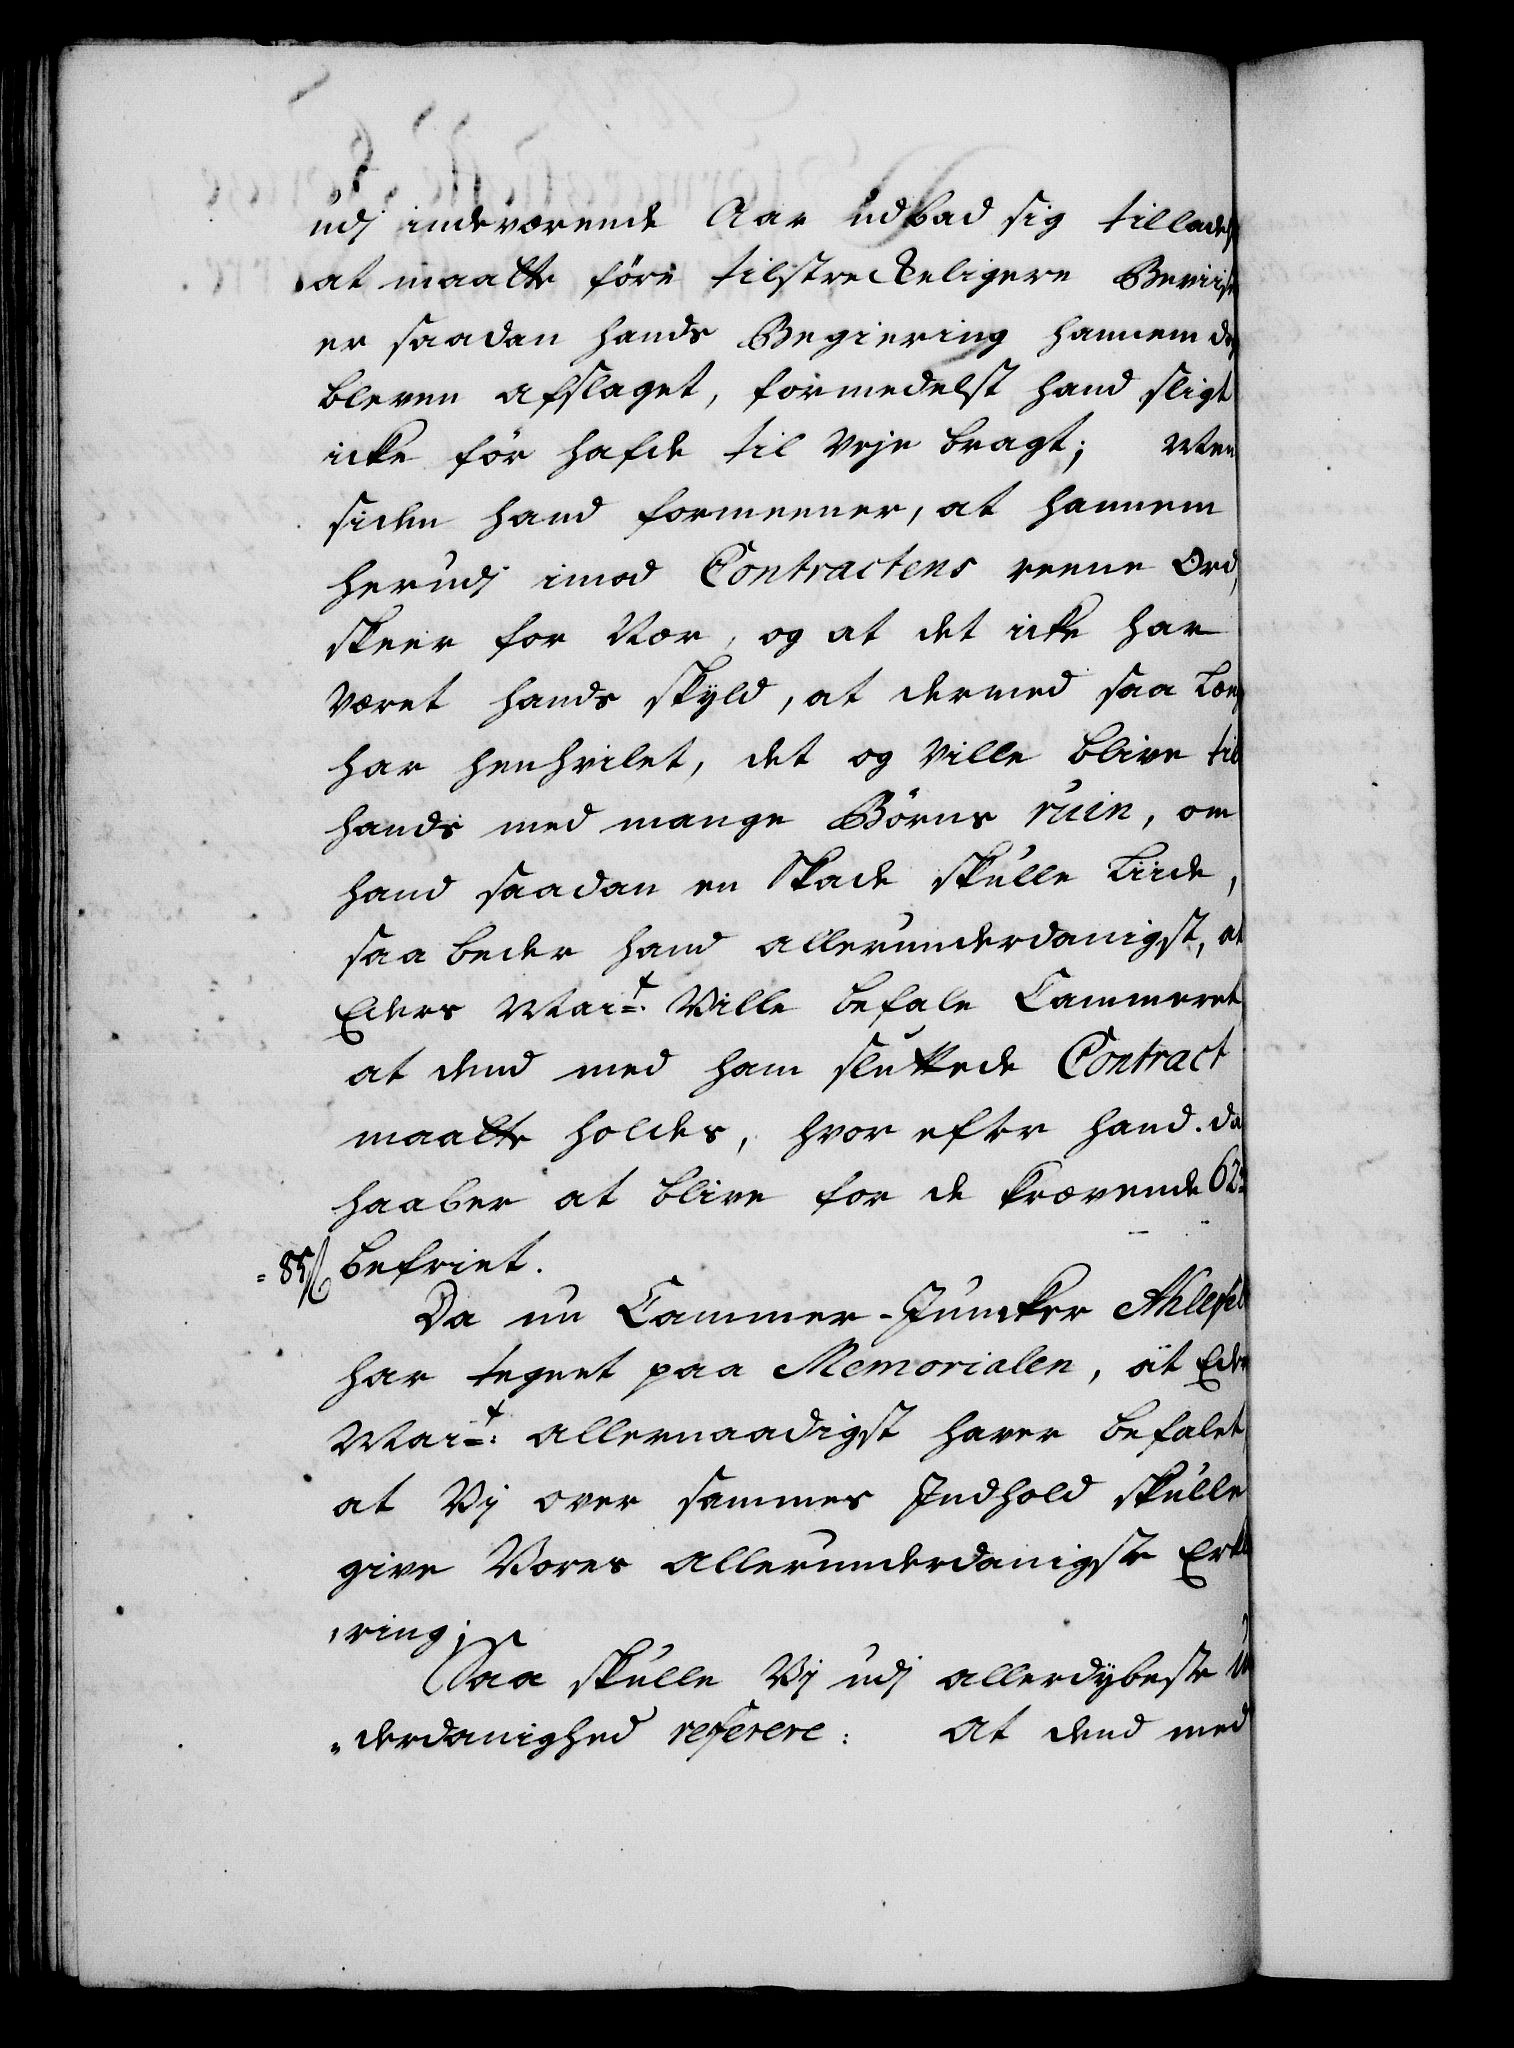 udj indeværende Aar udbad sig tillades
at maatte före tilstreckeligere Beviis
er saadan hands Begiering hannem dog
bleven afslaget, formedelst hand sligt
icke för hafde til veje bragt; Men
siden hand formeener, at hannem
herudj imod Contractens reene Ord,
skeer for nær, og at det icke har
været hands skyld, at dermed saa læng
har henhvilet, det og ville blive til
hands med mange Börns ruin, om
hand saadan en Skade skulle liide,
saa beder hand allerunderdanigst, at
Eders Mai:t Ville befale Cammeret
at dend med ham sluttede Contract
maatte holdes, hvor efter hand da
haaber at blive for de krævende 62
= 85 ß befriet.
Da nu Cammer-Juncker Ahlefel
har tegnet paa Memorialen, at Eders
Mai:t allernaadigst haver befalet
at Vj over sammes Indhold skulle
give Vores allerunderdanigste Erkl
„ring;
Saa skulle Vj udj allerdybeste un
„derdanighed referere: At dend med